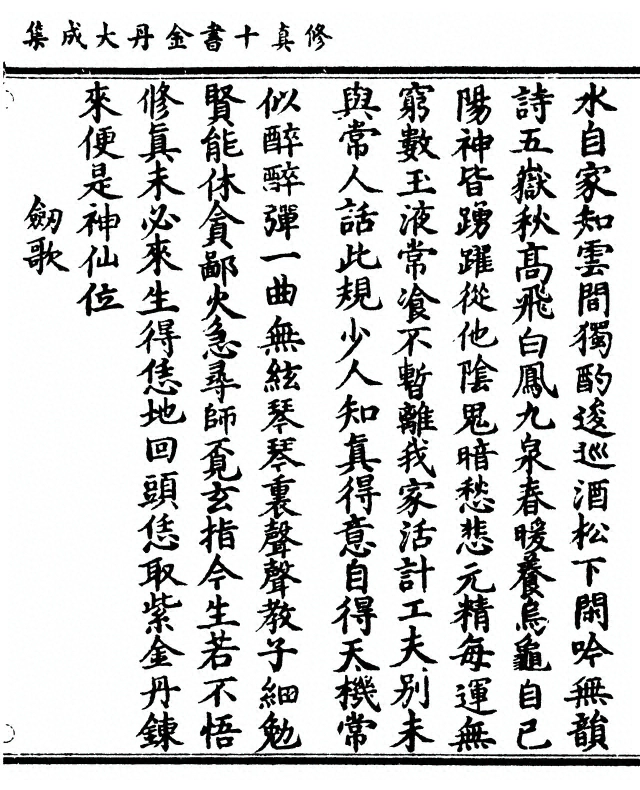 修真十書金丹大成集
水自家知雲間獨酌逡巡酒松下閑吟無韻
詩五嶽秋高飛白鳳九泉春暖養烏龜自己
陽神皆踴躍從他陰鬼暗愁悲元精每運無
窮數玉液常飡不暫離我家活計工夫別未
與常人話此規少人知真得意自得天機常
似醉醉彈一曲無絃琴琴裏聲聲教子細勉
賢能休貪鄙火急尋師覓玄指今生若不悟
修真未必來生得恁地回頭恁取紫金丹鍊
來便是神仙位
劒歌